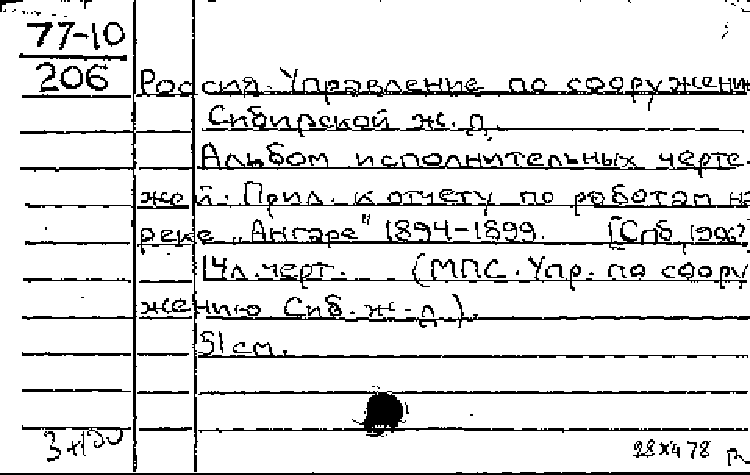 77-10
206
Россия. Управление по сооружени
Сибирской ж. д.
Альбом исполнительных черте-
жей. Прил. к отчету по работам на
реке „Ангаре" 1894-1899. [Спб,
14л. черт. (МПС. Упр. по соору
жению Сиб. ж-д.).
51 см.
28х478